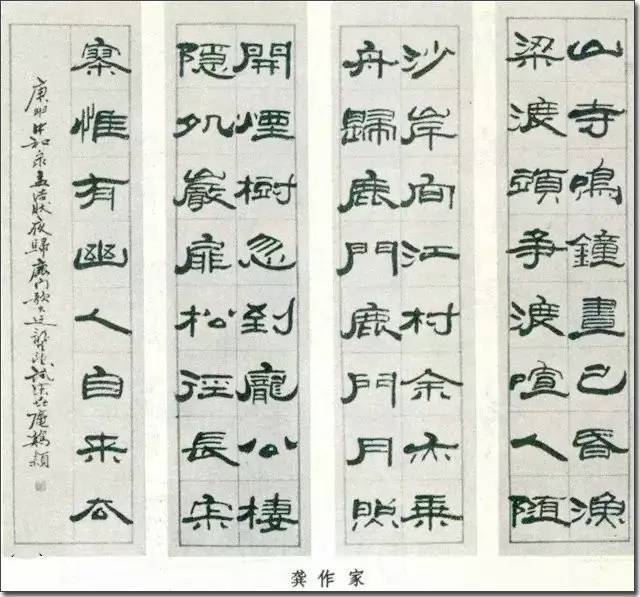 山寺鳴鐘晝已昏漁
梁渡頭争渡喧人随
沙岸向江村余亦乗
舟歸鹿門鹿門月照
開煙樹忽到龐公棲
隱処巖扉松徑長寂
寥惟有幽人自来去
孟浩然夜歸鹿门歌
龚作家